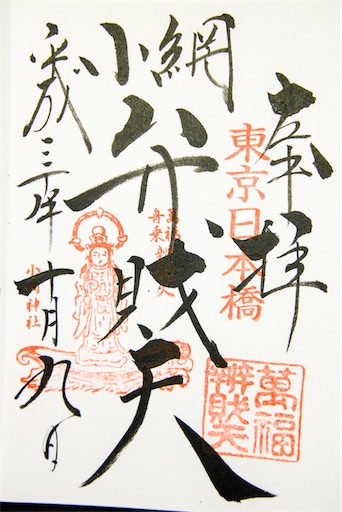 奉拝
東京日本橋
萬福
辨財天
小網
弁財天
萬福
舟乗弁財天
平成三十年十月九日
小網神社